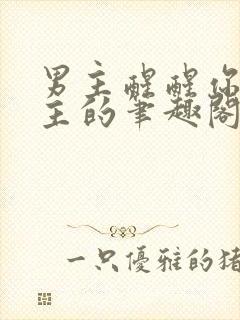 男主醒醒你
主的笔趣阁
一只優雅的猪